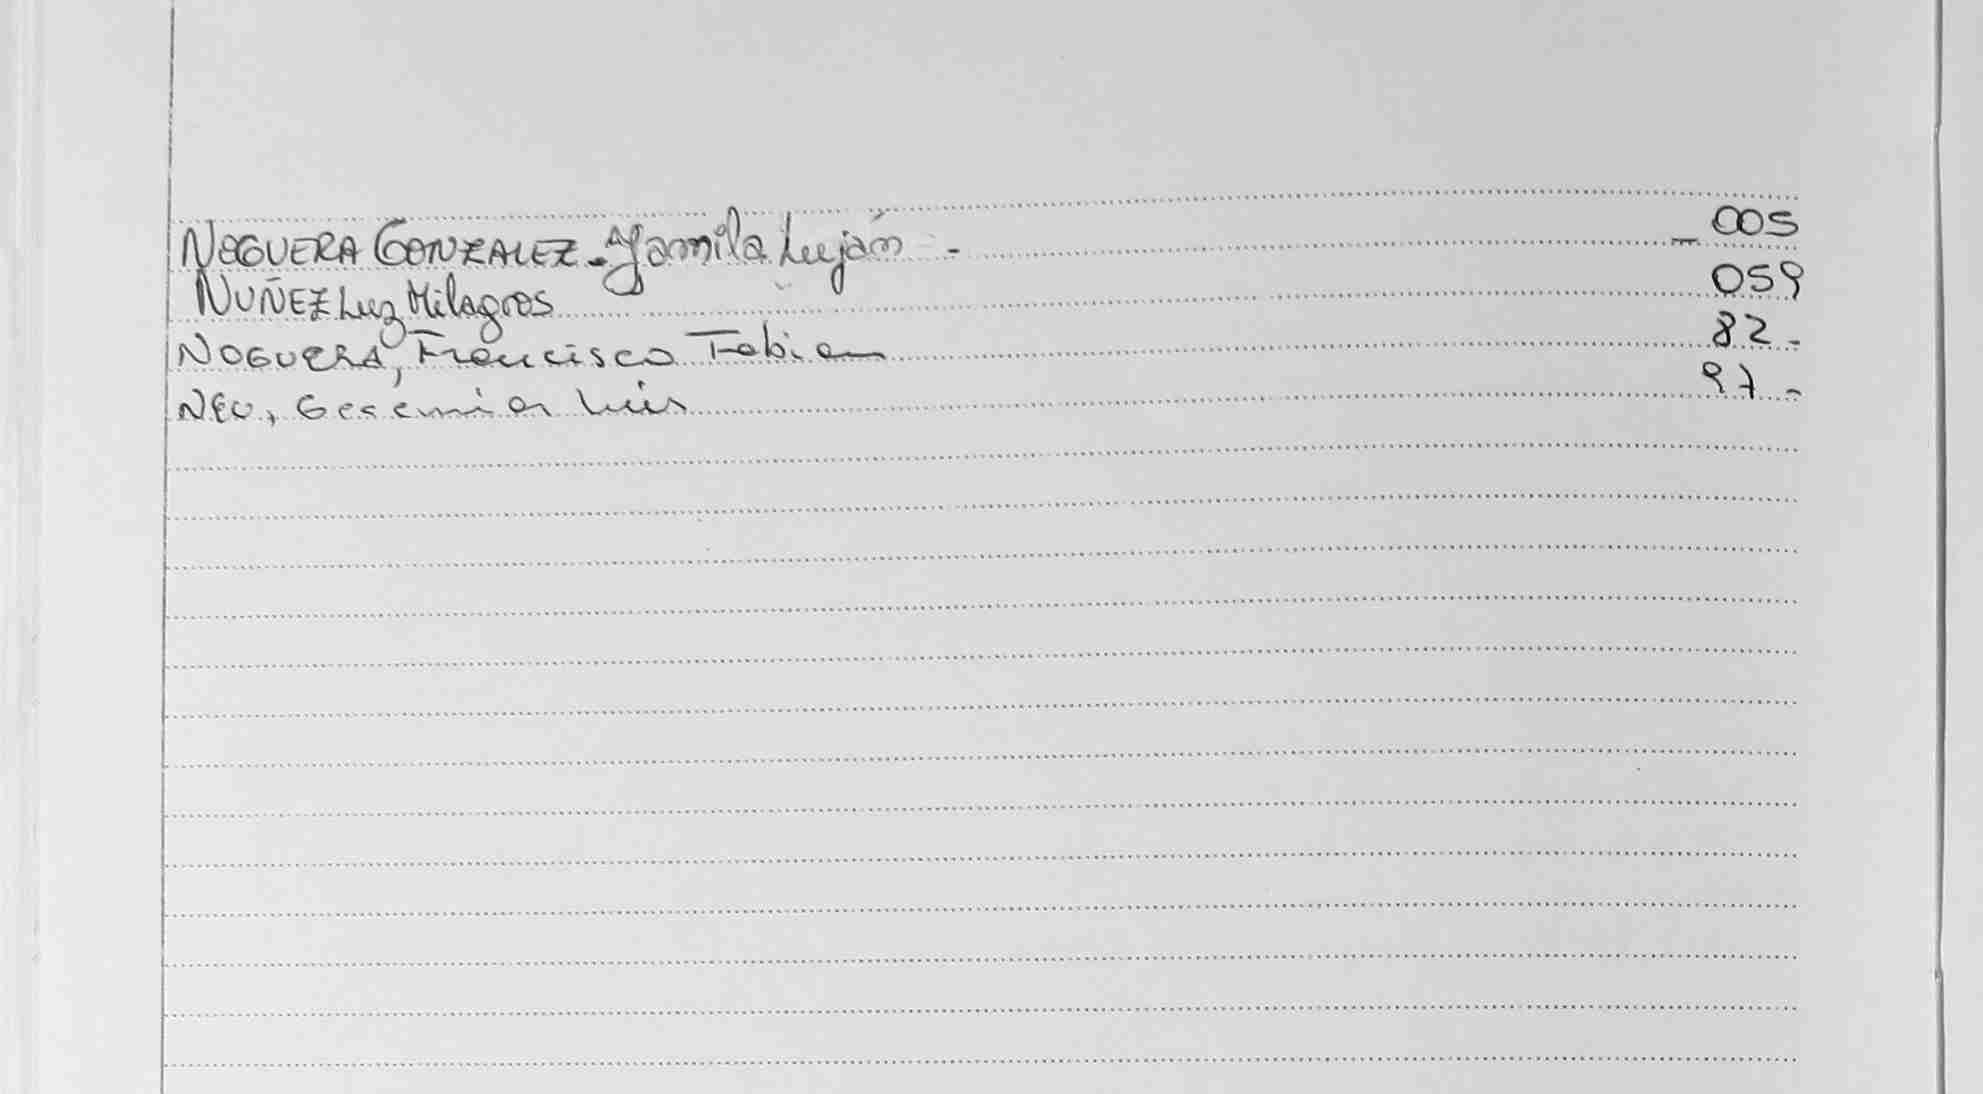 NOGUERA GONZALEZ - Yamila Luján - _ 005
NUÑEZ Luz Milagros 059
NOGUERA, Francisco Fabian 82-
NEU, Luis 97-